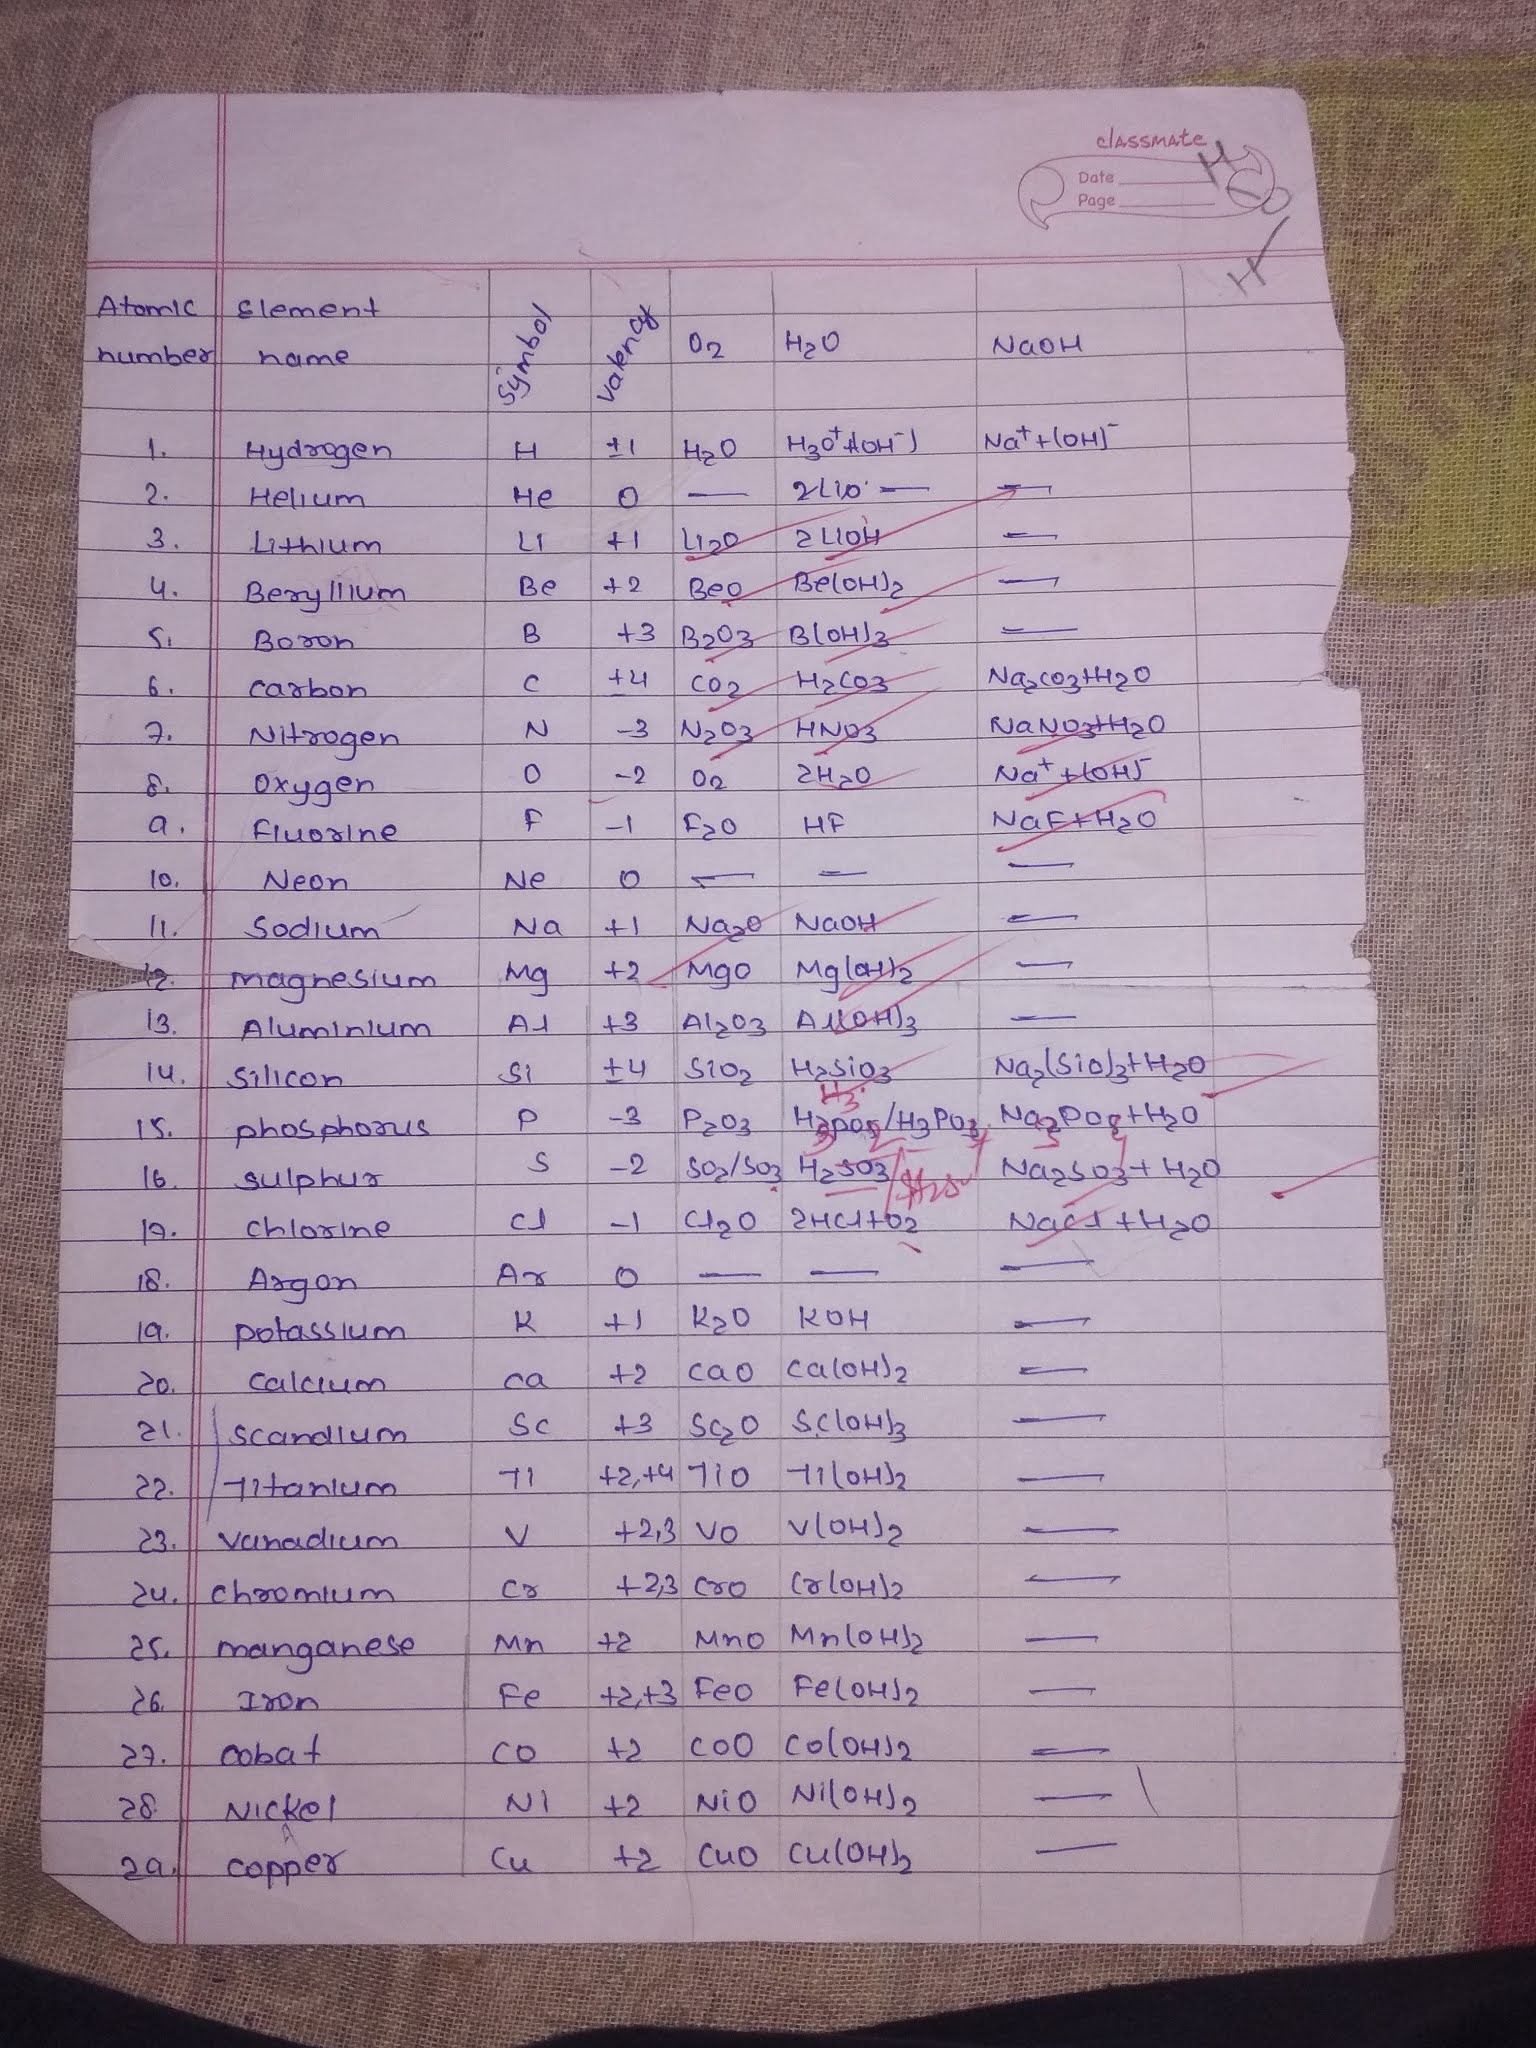 classmate
Date
Page
H
O
H
Atomic number Element name Symbol Valency O2 H2O NaOH
1. Hydrogen H ±1 H2O H3O+ +(OH-) Na+ +(OH)-
2. Helium He 0 — 2Li0 — —
3. Lithium Li +1 Li2O 2LiOH —
4. Beryllium Be +2 BeO Be(OH)2 —
5. Boron B +3 B2O3 B(OH)3 —
6. Carbon C ±4 CO2 H2CO3 Na2CO3+H2O
7. Nitrogen N -3 N2O3 HNO3 NaNO3+H2O
8. Oxygen O -2 O2 2H2O Na+ +(OH)-
9. Fluorine F -1 F2O HF NaF+H2O
10. Neon Ne 0 — — —
11. Sodium Na +1 Na2O NaOH —
12. magnesium Mg +2 MgO Mg(OH)2 —
13. Aluminium Al +3 Al2O3 Al(OH)3 —
14. Silicon Si ±4 SiO2 H2SiO3 Na2(SiO)3+H2O
H3
15. phosphorus P -3 P2O3 /H3PO3 +H2O
16. sulphur S -2 SO2/SO3 H2SO3 Na2SO3+H2O
17. chlorine Cl -1 Cl2O 2HCl+O2 NaCl+H2O
18. Argon Ar 0 — — —
19. potassium K +1 K2O KOH —
20. Calcium Ca +2 CaO Ca(OH)2 —
21. Scandium Sc +3 Sc2O Sc(OH)3 —
22. Titanium Ti +2,+4 TiO Ti(OH)2 —
23. vanadium V +2,3 VO V(OH)2 —
24. chromium Cr +2,3 CrO Cr(OH)2 —
25. manganese Mn +2 MnO Mn(OH)2 —
26. Iron Fe +2,+3 FeO Fe(OH)2 —
27. cobat CO +2 COO CO(OH)2 —
28. Nickel Ni +2 NiO Ni(OH)2 —
29. copper Cu +2 CuO Cu(OH)2 —